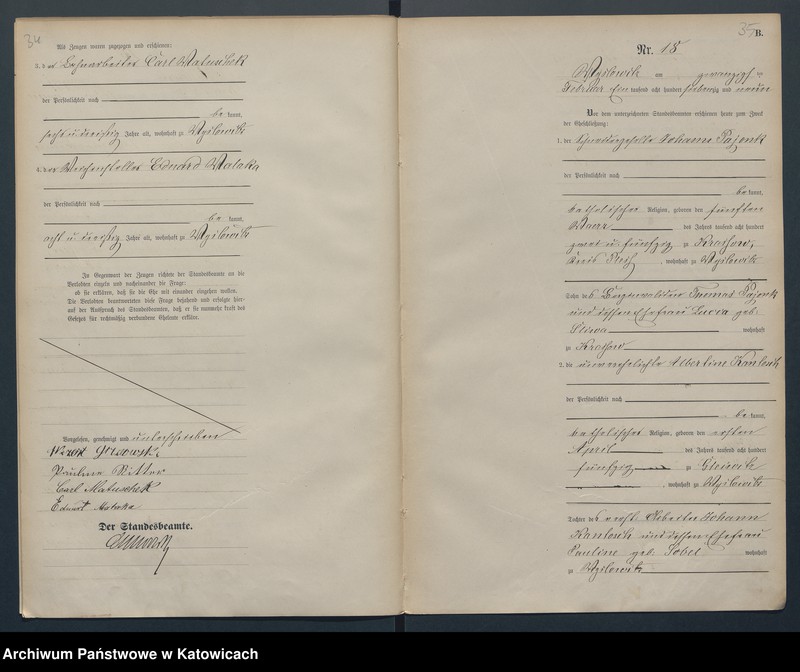 34
Als Zeugen waren zugezogen und erschienen:
3. der Lohnarbeiter Carl Matuschek
der Persönlichkeit nach
be kannt,
sechs u dreißig Jahre alt, wohnhaft zu Myslowitz
4. der Weichensteller Eduard Malaka
der Persönlichkeit nach
be kannt,
acht u dreißig Jahre alt, wohnhaft zu Myslowitz
In Gegenwart der Zeugen richtete der Standesbeamte an die
Verlobten einzeln und nacheinander die Frage:
ob sie erklären, daß sie die Ehe mit einander eingehen wollen.
Die Verlobten beantworteten diese Frage bejahend und erfolgte hier-
auf der Ausspruch des Standesbeamten, daß er sie nunmehr kraft des
Gesetzes für rechtmäßig verbundene Eheleute erkläre.
Vorgelesen, genehmigt und unterschrieben
Pauline Ritter
Carl Matuschek
Eduard Malaka
Der Standesbeamte.
35
B.
Nr. 18
Myslowitz am zwanzigsten
Februar Ein tausend acht hundert siebenzig und neun
Vor dem unterzeichneten Standesbeamten erschienen heute zum Zweck
der Eheschließung:
1. der Schneidergeselle Johann Pajonk
der Persönlichkeit nach
be kannt,
katholischer Religion, geboren den fünften
März des Jahres tausend acht hundert
zwei u. fünfzig zu Krassow,
Kreis Pleß, wohnhaft zu Myslowitz
Sohn des Thomas Pajonk
und dessen Ehefrau geb.
wohnhaft
zu Krassow
2. die unverehelichte Albertine Kantosch
der Persönlichkeit nach
be kannt,
katholischer Religion, geboren den ersten
April des Jahres tausend acht hundert
fünfzig zu Gleiwitz
, wohnhaft zu Myslowitz
Tochter des Arbeiter Johann
und dessen Ehefrau
Pauline geb. wohnhaft
zu Myslowitz
Archiwum Państwowe w Katowicach